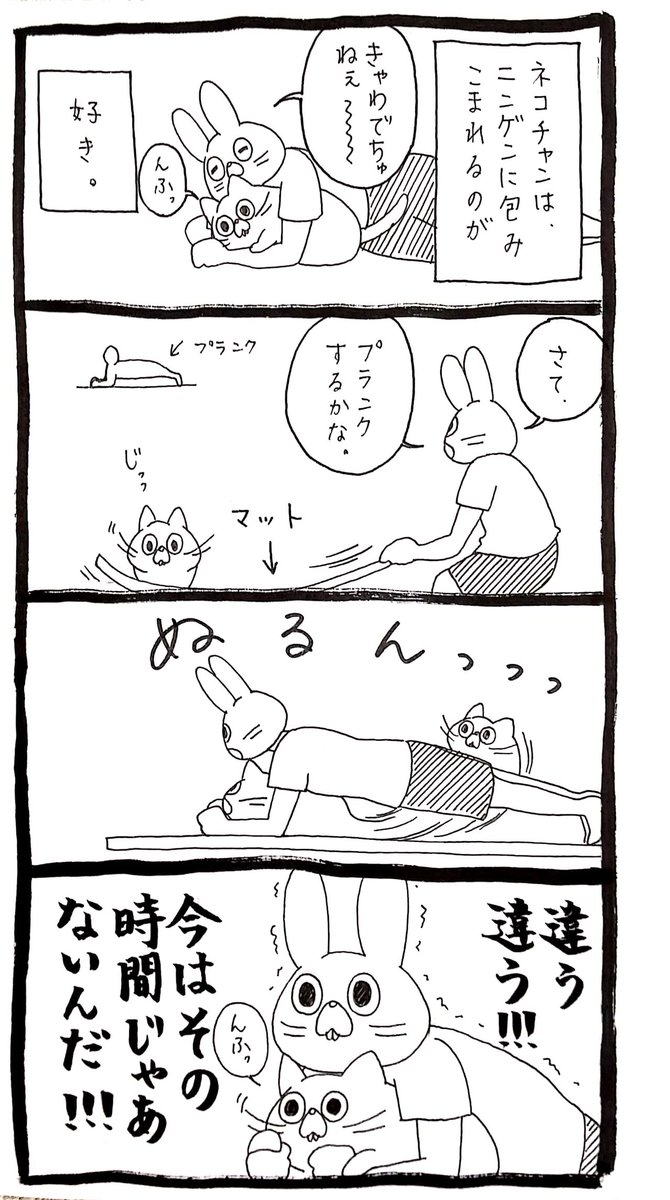 ネコチャンは、
ニンゲンに包み
こまれるのが
きゃわでちゅ
ねぇ〜〜〜
んふっ
好き。
さて、
プランク
するかな。
プランク
じっっ
マット
ぬるんっっっ
違う
違う!!!
今はその
時間じゃあ
ないんだ!!!
んふっ